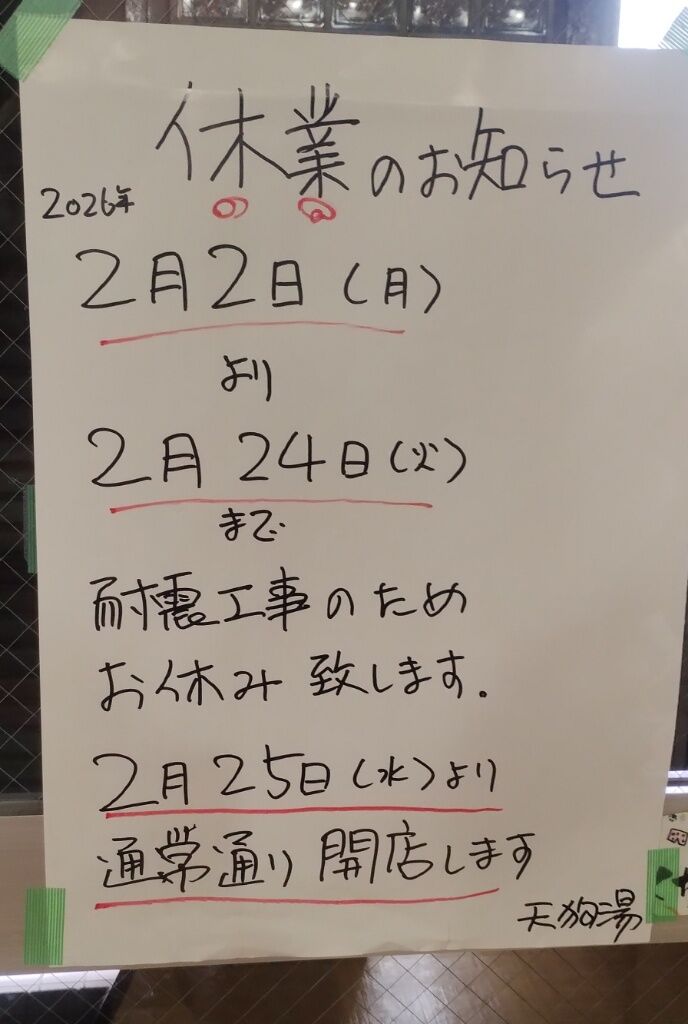 休業のお知らせ
2026年
2月2日(月)
より
2月24日(火)
まで
耐震工事のため
お休み致します.
2月25日(水)より
通常通り開店します
天狗湯